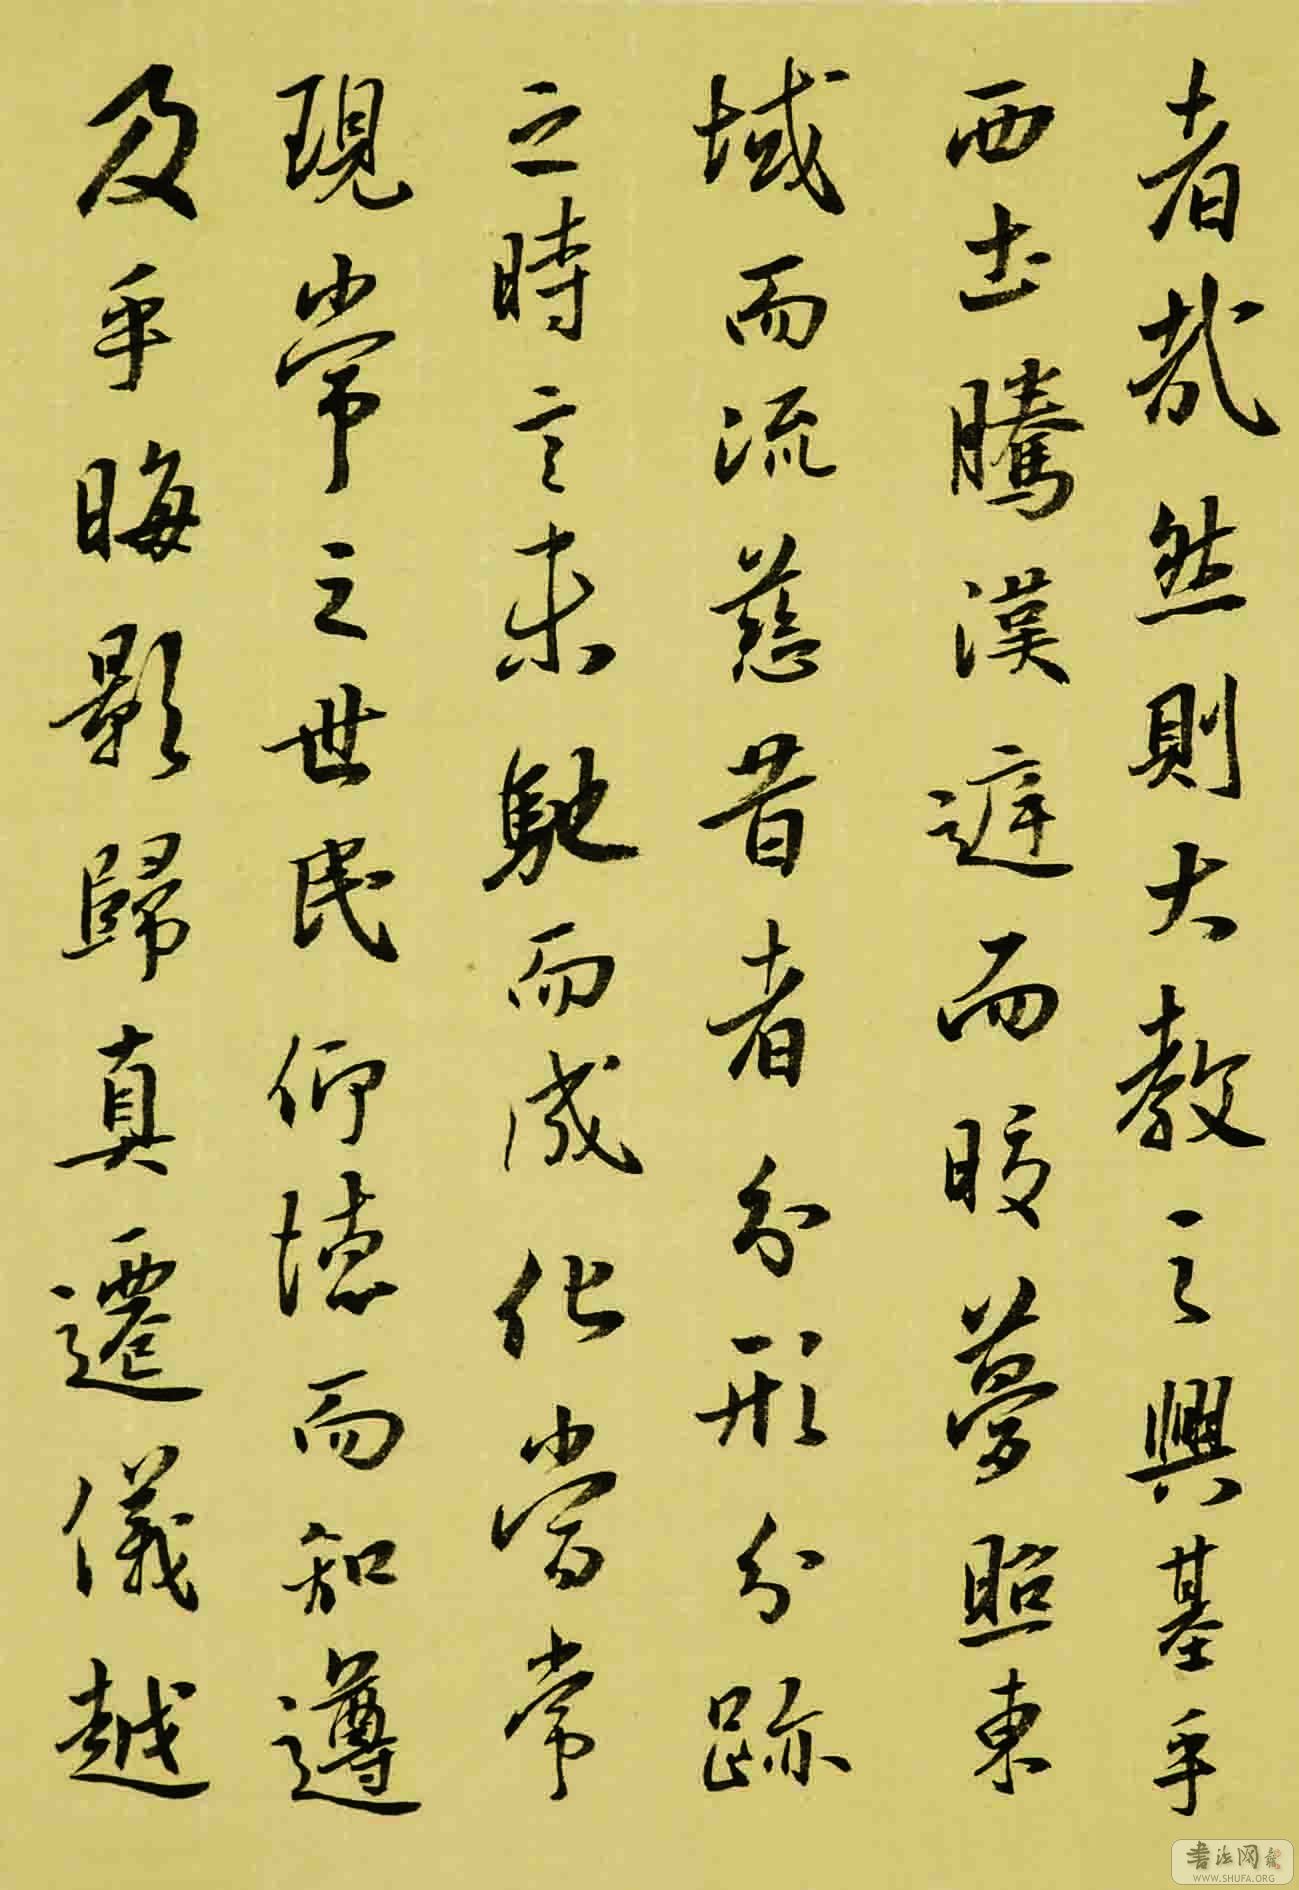 者哉然則大教之興基乎
西土騰漢庭而皎夢照東
域而流慈昔者分形分跡
之時言未馳而成化當常
現常之世民仰德而知遵
及乎晦影歸真遷儀越
書法网
WWW.SHUFA.ORG